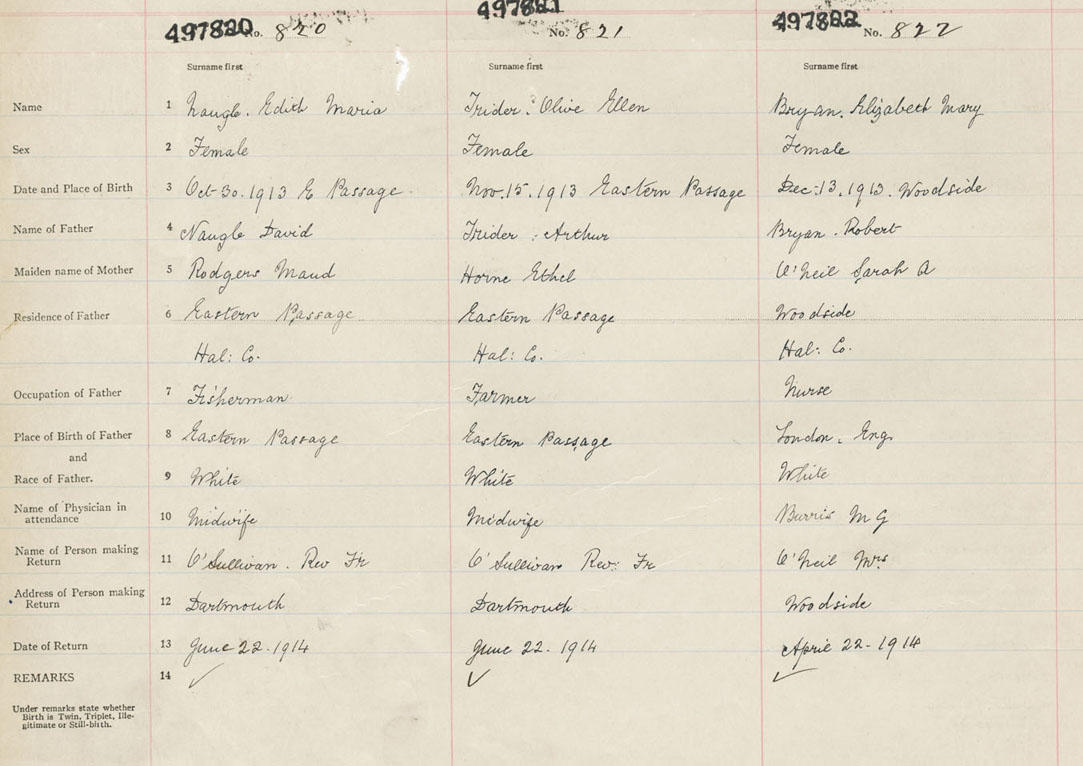 497820 No. 820 497821 No. 821 497822 No. 822
Surname first Surname first Surname first
Name 1 Naugle. Edith Maria Trider: Olive Ellen Bryan. Elizabeth Mary
Sex 2 Female Female Female
Date and Place of Birth 3 Oct 30. 1913 E Passage Nov. 15. 1913 Eastern Passage Dec: 13. 1913. Woodside
Name of Father 4 Naugle David Trider: Arthur Bryan. Robert
Maiden name of Mother 5 Rodgers Maud Horne Ethel O'Neil Sarah A
Residence of Father 6 Eastern Passage Eastern Passage Woodside
Hal: Co. Hal: Co. Hal: Co.
Occupation of Father 7 Fisherman Farmer Nurse
Place of Birth of Father 8 Eastern Passage Eastern Passage London. Eng.
and
Race of Father. 9 White White White
Name of Physician in
attendance 10 Midwife Midwife Burris M G
Name of Person making
Return 11 O'Sullivan. Rev Fr O'Sullivan Rev: Fr O'Neil Mrs
Address of Person making
Return 12 Dartmouth Dartmouth Woodside
Date of Return 13 June 22. 1914 June 22. 1914 April 22. 1914
REMARKS 14 ✓ ✓ ✓
Under remarks state whether
Birth is Twin, Triplet, Ille-
gitimate or Still-birth.